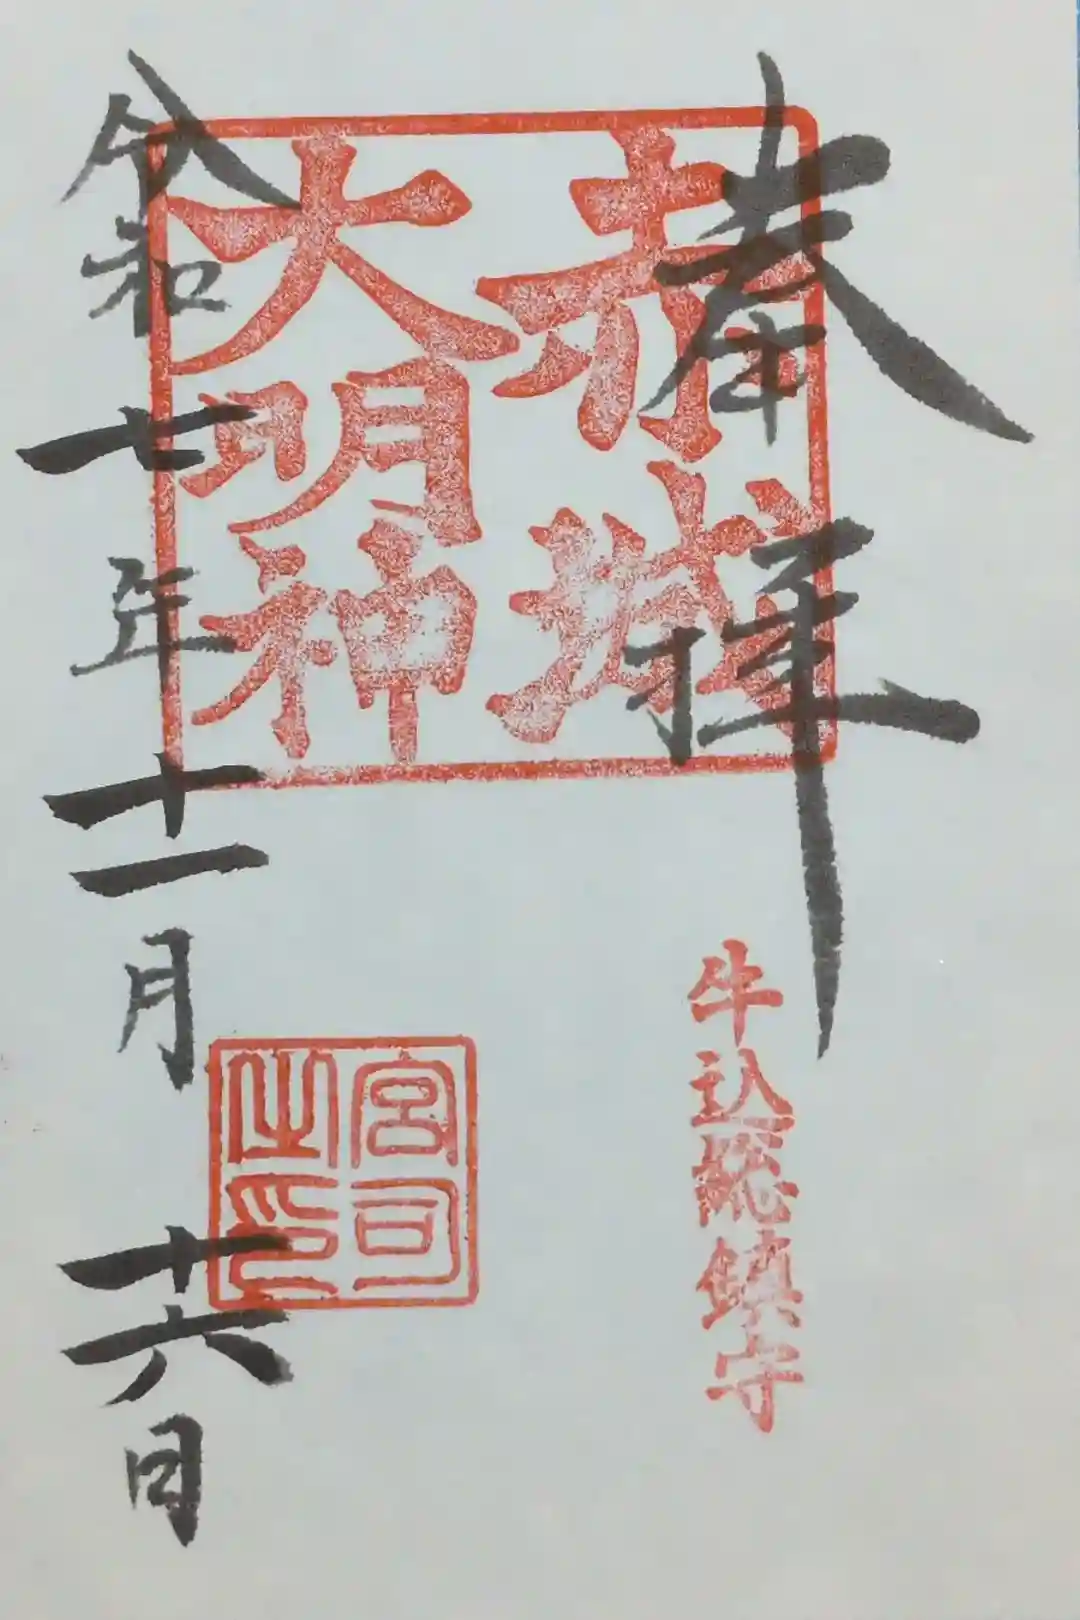 奉拝
赤城
大明神
牛込総鎮守
宮司
之印
令和七年十一月十六日